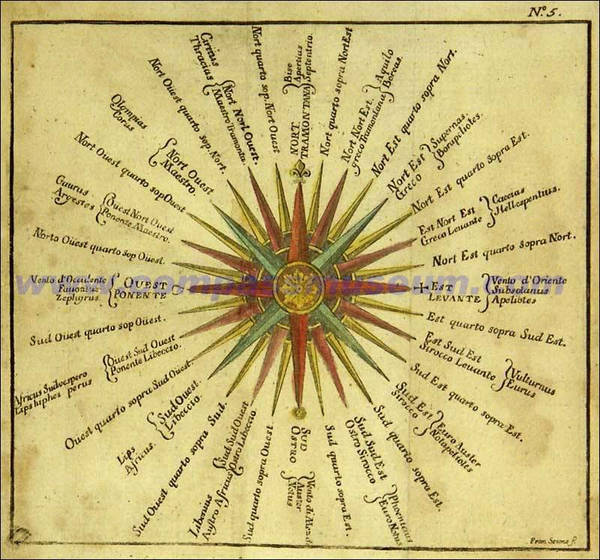 N.º 5.
NORT
TRAMONTANA
Bise
Apertius
Septentrio.
Nort quarto sopra Nort Est
Nort Nort Est.
Greco Tramontana
Aquilo
Boreas.
Nort Est quarto sopra Nort.
Nort Est
Greco
Supernas
Borapeliotes.
Nort Est quarto sopra Est.
Est Nort Est
Greco Levante
Caecias
Hellespontius.
Nort Est quarto sopra Nort.
EST
LEVANTE
Vento d'Oriente
Subsolanus
Apeliotes
Est quarto sopra Sud Est.
Est Sud Est
Sirocco Levante
Vulturnus
Eurus
Sud Est quarto sopra Est.
Sud Est
Sirocco
Euro Auster
Notapeliotes
Sud quarto sopra Est.
Sud Sud Est
Ostro Sirocco
Phoenicius
Euro Notus
Sud quarto sopra Est.
SUD
OSTRO
Auster
Notus
Sud quarto sop. Ouest
Sud Sud Ouest
Ostro Libeccio
Libonius
Austro Africus
Sud Ouest quarto sopra Sud.
Sud Ouest.
Libeccio
Lips
Africus.
Ouest quarto sopra Sud Ouest.
Ouest Sud Ouest
Ponente Libeccio
Africus Sudvespero
Sud Ouest quarto sop Ouest.
OUEST
PONENTE
Vento d'Occidente
Fauonius
Zephyrus
Norto Ouest quarto sop Ouest.
Ouest Nort Ouest
Ponente Maestro.
Gaurus
Argestes
Nort Ouest quarto sop Ouest
Nort Ouest
Maestro
Olompias
Corus
Nort Ouest quarto sop. Nort.
Nort Nort Ouest.
Maestro Tramonta.
Circius
Thracias
Nort quarto sop. Nort Ouest
www.compassmuseum.com
Fran. Sesone f.